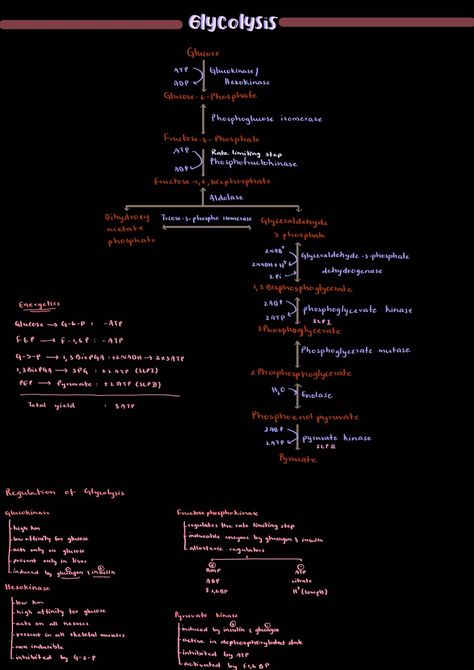 Glycolysis
Glucose
ATP
ADP
Glucokinase/
Hexokinase
Glucose-6-Phosphate
Phosphoglucose isomerase
Fructose-6-Phosphate
ATP
ADP
Rate limiting step
Phosphofructokinase
Fructose-1,6,bisphosphate
Aldolase
Dihydroxy
acetate
phosphate
Triose-3-phospho isomerase
Glyceraldehyde
3 phosphate
2NAD+
2NADH+H+
2Pi
Glyceraldehyde-3-phosphate
dehydrogenase
1,3Bisphosphoglycerate
2ADP
2ATP
phosphoglycerate kinase
SLP I
3Phosphoglycerate
Phosphoglycerate mutase
2 Phosphoglycerate
H2O
Enolase
Phosphoenol pyruvate
2ADP
2ATP
pyruvate kinase
SLP II
Pyruvate
Energetics
Glucose → G-6-P : -ATP
F 6 P → F-1,6P : -ATP
G-3-P → 1,3BisPGA : +2NADH → 2x3ATP
1,3BisPGA → 3PG : +2 ATP (SLP I)
PEP → Pyruvate : +2 ATP (SLP II)
Total yield : 8ATP
Regulation of Glycolysis
Glucokinase
high km
low affinity for glucose
acts only on glucose
present only in liver
induced by glucagon & insulin
Hexokinase
low km
high affinity for glucose
acts on all hexoses
present in all skeletal muscles
non inducible
inhibited by G-6-P
Fructosephosphokinase
regulates the rate limiting step
inducible enzyme by glucagon & insulin
allosteric regulators
AMP
ADP
F2,6BP
ATP
citrate
H+ (low pH)
Pyruvate kinase
induced by insulin & glucagon
active in dephosphorylated state
inhibited by ATP
activated by F1,6 BP